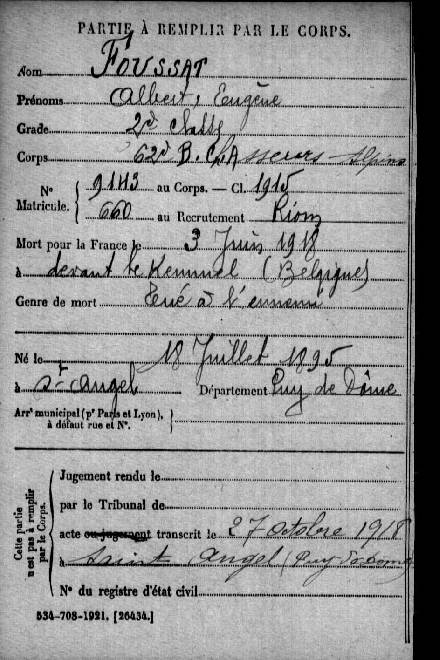 PARTIE À REMPLIR PAR LE CORPS.
Nom FOUSSAT
Prénoms Albert, Eugène
Grade 2d classe
Corps 62d B. Chasseurs Alpins
N° Matricule. { 9143 au Corps. — Cl. 1915
660 au Recrutement Riom
Mort pour la France le 3 Juin 1918
à devant le Kemmel (Belgique)
Genre de mort Tué à l'ennemi
Né le 18 Juillet 1895
à St Angel Département Puy de Dôme
Arrt municipal (pr Paris et Lyon), à défaut rue et N°. }
Cette partie n'est pas à remplir par le Corps. {
Jugement rendu le
par le Tribunal de
acte ou jugement transcrit le 27 octobre 1918
à Saint Angel (Puy-de-Dome)
N° du registre d'état civil
534-708-1921. [26434.]